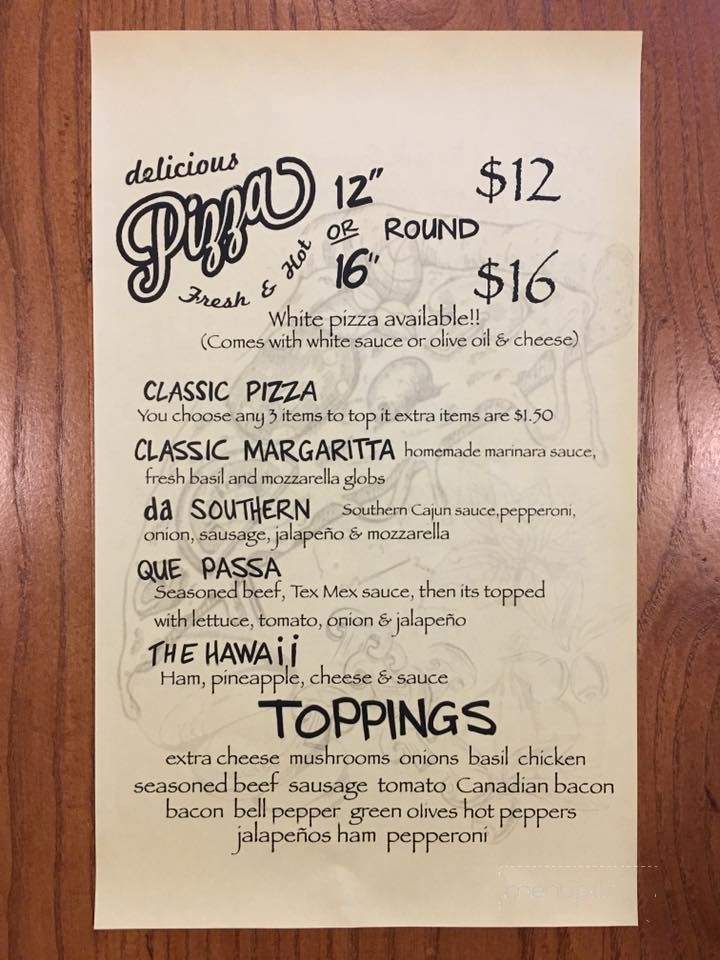 delicious
Pizza
Fresh & Hot
12" $12
OR ROUND
16" $16
White pizza available!!
(Comes with white sauce or olive oil & cheese)
CLASSIC PIZZA
You choose any 3 items to top it extra items are $1.50
CLASSIC MARGARITTA homemade marinara sauce,
fresh basil and mozzarella globs
da SOUTHERN Southern Cajun sauce,pepperoni,
onion, sausage, jalapeño & mozzarella
QUE PASSA
Seasoned beef, Tex Mex sauce, then its topped
with lettuce, tomato, onion & jalapeño
THE HAWAii
Ham, pineapple, cheese & sauce
TOPPINGS
extra cheese mushrooms onions basil chicken
seasoned beef sausage tomato Canadian bacon
bacon bell pepper green olives hot peppers
jalapeños ham pepperoni